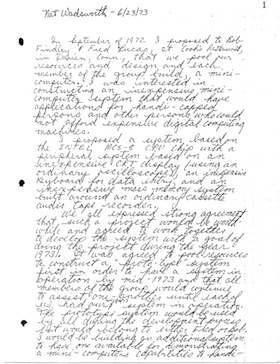 1
Nat Wadsworth - 6/23/73
In September of 1972 I proposed to Bob
Findley & Fred Lucas, at
in , Conn, that we pool our
resources and design and each
member of the group build, a mini-
computer. I was interested in
constructing an inexpensive mini-
computer system that would have
applications for handi-capped
persons and other persons who could
not afford expensive digital computing
machines.
I proposed a system based on
the INTEL MCS-8 CPU chip with a
peripheral system based on an
inexpensive CRT display (using an
ordinary oscilloscope), an inexpensive
keyboard for data entry, and an
inexpensive mass memory system
built around an ordinary cassette
audio tape recorder.
We all expressed strong agreement
that such a project would be worth
while and agreed to work together
to develop the system with a goal of
doing the project during the year
1973. It was agreed to pool resources
to construct a "prototype" system
first in order to have a system in
operation by mid 1973 and that all
members of the group would continue
to assist one another until each of
us had our system in operation.
The prototype system would be used
by all during the development process
but would belong to either Fred or Bob.
I would be building an additional system
to have one available for demonstrating
a mini-computers capabilities to handi-